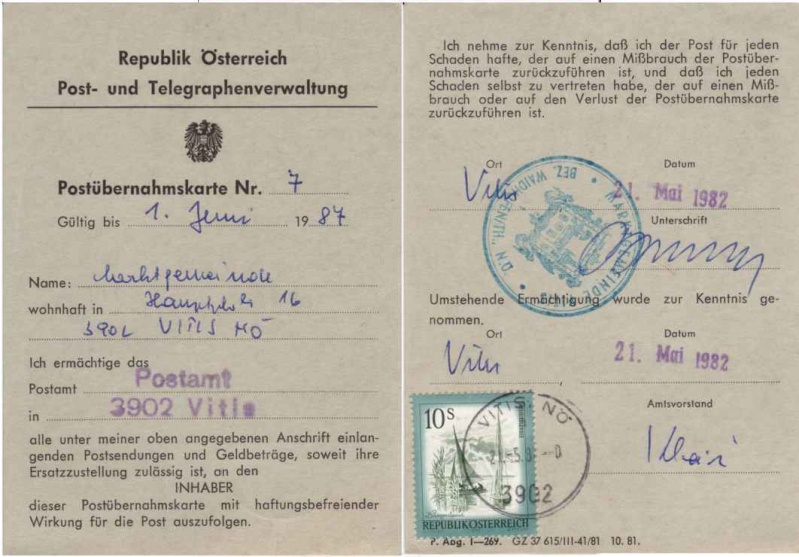 Republik Österreich
Post- und Telegraphenverwaltung
Postübernahmskarte Nr. 7
Gültig bis 1. Juni 1987
Name: Marktgemeinde
wohnhaft in Hauptplatz 16
3902 VITIS NÖ
Ich ermächtige das
Postamt Postamt
in 3902 Vitis
alle unter meiner oben angegebenen Anschrift einlan-
genden Postsendungen und Geldbeträge, soweit ihre
Ersatzzustellung zulässig ist, an den
INHABER
dieser Postübernahmskarte mit haftungsbefreiender
Wirkung für die Post auszufolgen.
Ich nehme zur Kenntnis, daß ich der Post für jeden
Schaden hafte, der auf einen Mißbrauch der Postüber-
nahmskarte zurückzuführen ist, und daß ich jeden
Schaden selbst zu vertreten habe, der auf einen Miß-
brauch oder auf den Verlust der Postübernahmskarte
zurückzuführen ist.
Ort Datum
Vitis 21. Mai 1982
MARKTGEMEINDE VITIS BEZ. WAIDHOFEN/TH., NÖ
Unterschrift
Umstehende Ermächtigung wurde zur Kenntnis ge-
nommen.
Ort Datum
Vitis 21. Mai 1982
Amtsvorstand
10 S
VITIS, NÖ
3902
REPUBLIK ÖSTERREICH
P. Abg. I—269. GZ 37 615/III-41/81 10. 81.